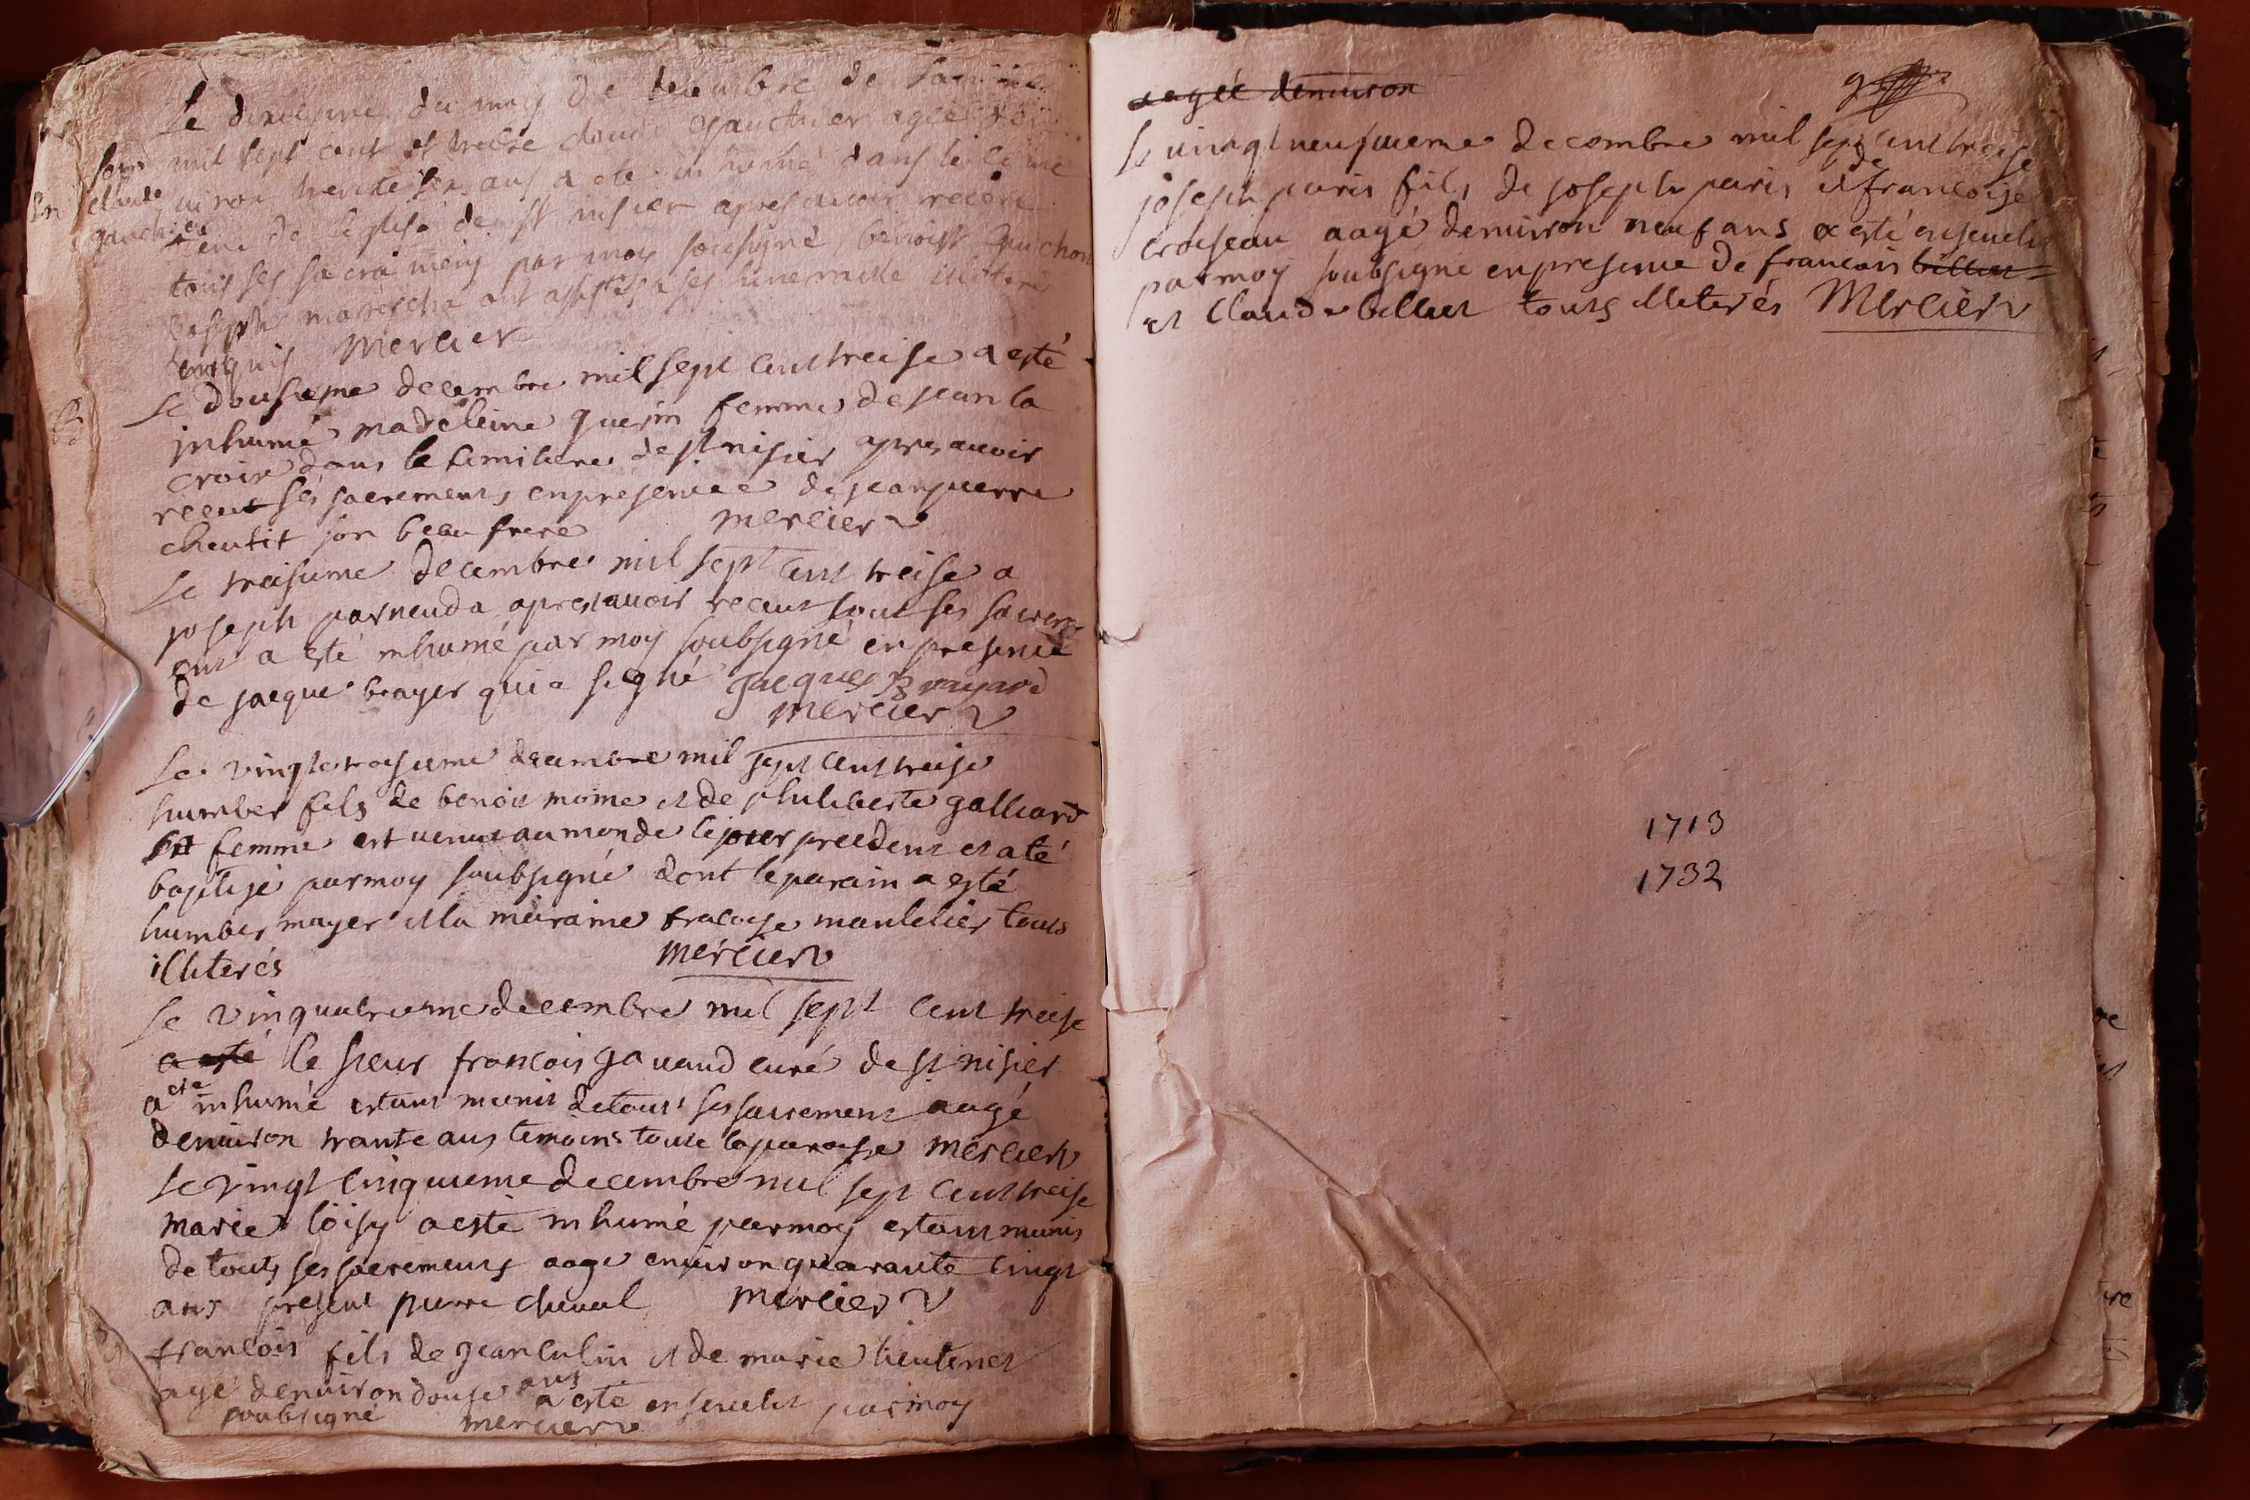 Le dixieme du moy de decembre de
mil sept cent et treise claude gauthier agée
uiron trente six ans a ete in humé dans le cime
tiere de leglise de st nisier apres auoir receu
tous ses sacramens par moy sousigné benoist guichon
joseph maréscha ont assistés a ses funeraille illiteré
enrequis Mercier
claude
gauthier
Le dousieme decembre mil sept cent treise a esté
jnhumé madeleine guerin femme de jean la
croix dans le cimitiere de st nisier apres auoir
receut ses sacrements en presence de jean pierre
cheutit son beau frere mercier
Le treisieme decembre mil sept cent treise a
joseph parneuda apres auoir receut tout ses sacrem
ent a esté inhumé par moy soubsigné en presence
de jaque brayer qui a signé Jacques Brayard
mercier
Le vingt troisieme decembre mil sept cent treise
humber fils de benoit moine et de philiberte galliard
sa femme est venut au monde le jour precedent et a té
baptisé par moy soubsigné dont le parain a esté
humber mayer et la maraine fracoise mantelier touts
illiterés mercier
Le vin quatrieme decembre mil sept cent treise
a esté le sieur francois gauaud curé de st nisier
a esté inhumé estant munit de tout ses sacrement aagé
denuiron trante ans temoins toute la paroisse mercier
Le vingt cinquieme decembre mil sept cent treise
marie loisy a esté inhumé par moy estant munis
de touts ses sacrements aage enuiron quarante cinqt
ans present pierre cheual mercier
francois fils de jean culin et de marie lieutenet
agé denuiron douse ans a esté enseuelit par moy
soubsigné mercier
aagée denuiron
Le uinqt neufuieme decembre mil sept cent treise
joseph paris fils de joseph paris et de francoise
croiseau aagé denuiron neuf ans a esté enseuelit
par moy soubsigné en presence de francois billiet
et Claude billiet touts illiterés Mercier
1713
1732